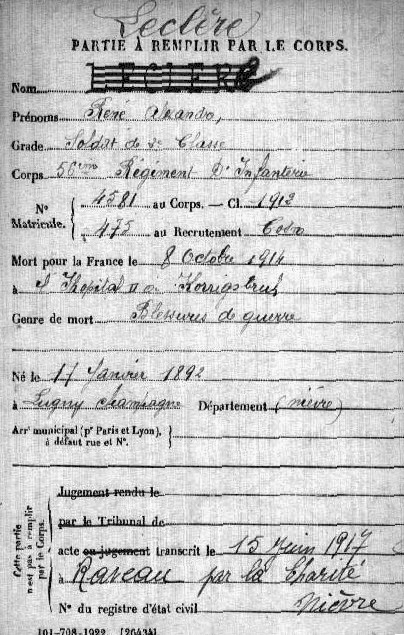 Leclère
PARTIE À REMPLIR PAR LE CORPS.
Nom LECLERC
Prénoms René Alexandre,
Grade Soldat de 2e Classe
Corps 56eme Régiment D'Infanterie
N° Matricule. 4581 au Corps. — Cl. 1912
475 au Recrutement Cosne
Mort pour la France le 8 Octobre 1914
à l'hopital
Genre de mort Blessures de guerre
Né le 17 Janvier 1892
à Lugny champagne Département (nièvre)
Arr' municipal (p' Paris et Lyon),
à défaut rue et N°.
Cette partie n'est pas à remplir par le Corps.
Jugement rendu le
par le Tribunal de
acte ou jugement transcrit le 15 Juin 1917
à Raveau par la Charité
N° du registre d'état civil Nièvre
101-708-1922. [26434]